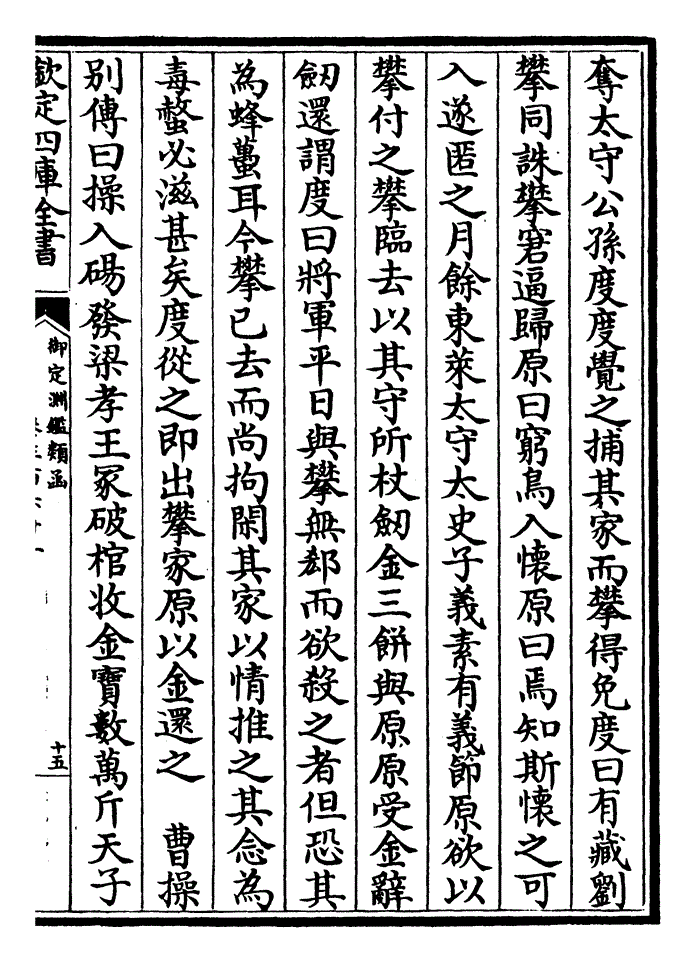 奪太守公孫度度覺之捕其家而攀得免度曰有藏劉
攀同誅攀窘逼歸原曰窮鳥入懷原曰焉知斯懷之可
入遂匿之月餘東萊太守太史子義素有義節原欲以
攀付之攀臨去以其守所杖劒金三餅與原原受金辭
劒還謂度曰將軍平日與攀無郄而欲殺之者但恐其
為蜂蠆耳今攀已去而尚拘閑其家以情推之其念為
毒螫必滋甚矣度從之即出攀家原以金還之　曹操
別傳曰操入碭發梁孝王冢破棺收金寶數萬斤天子
欽定四庫全書
御定淵鑑類函
十五